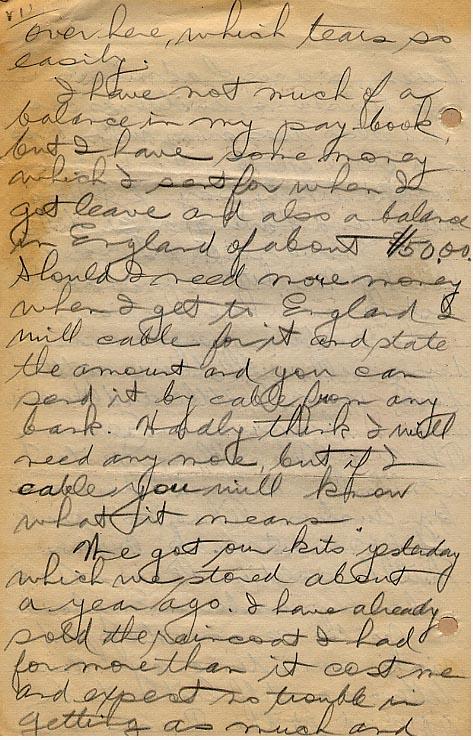 over here, which tears so
easily.
I have not much of a
balance in my pay-book,
but I have some money
which I sent for when I
got leave and also a balance
in England of about $150.00.
Should I need more money
when I get to England I
will cable for it and state
the amount and you can
send it by cable from any
bank. Hardly think I will
need any more, but if I
cable you will know
what it means.
We got our kits yesterday
which we stored about
a year ago. I have already
sold the raincoat I had
for more than it cost me
and expect no trouble in
getting as much and